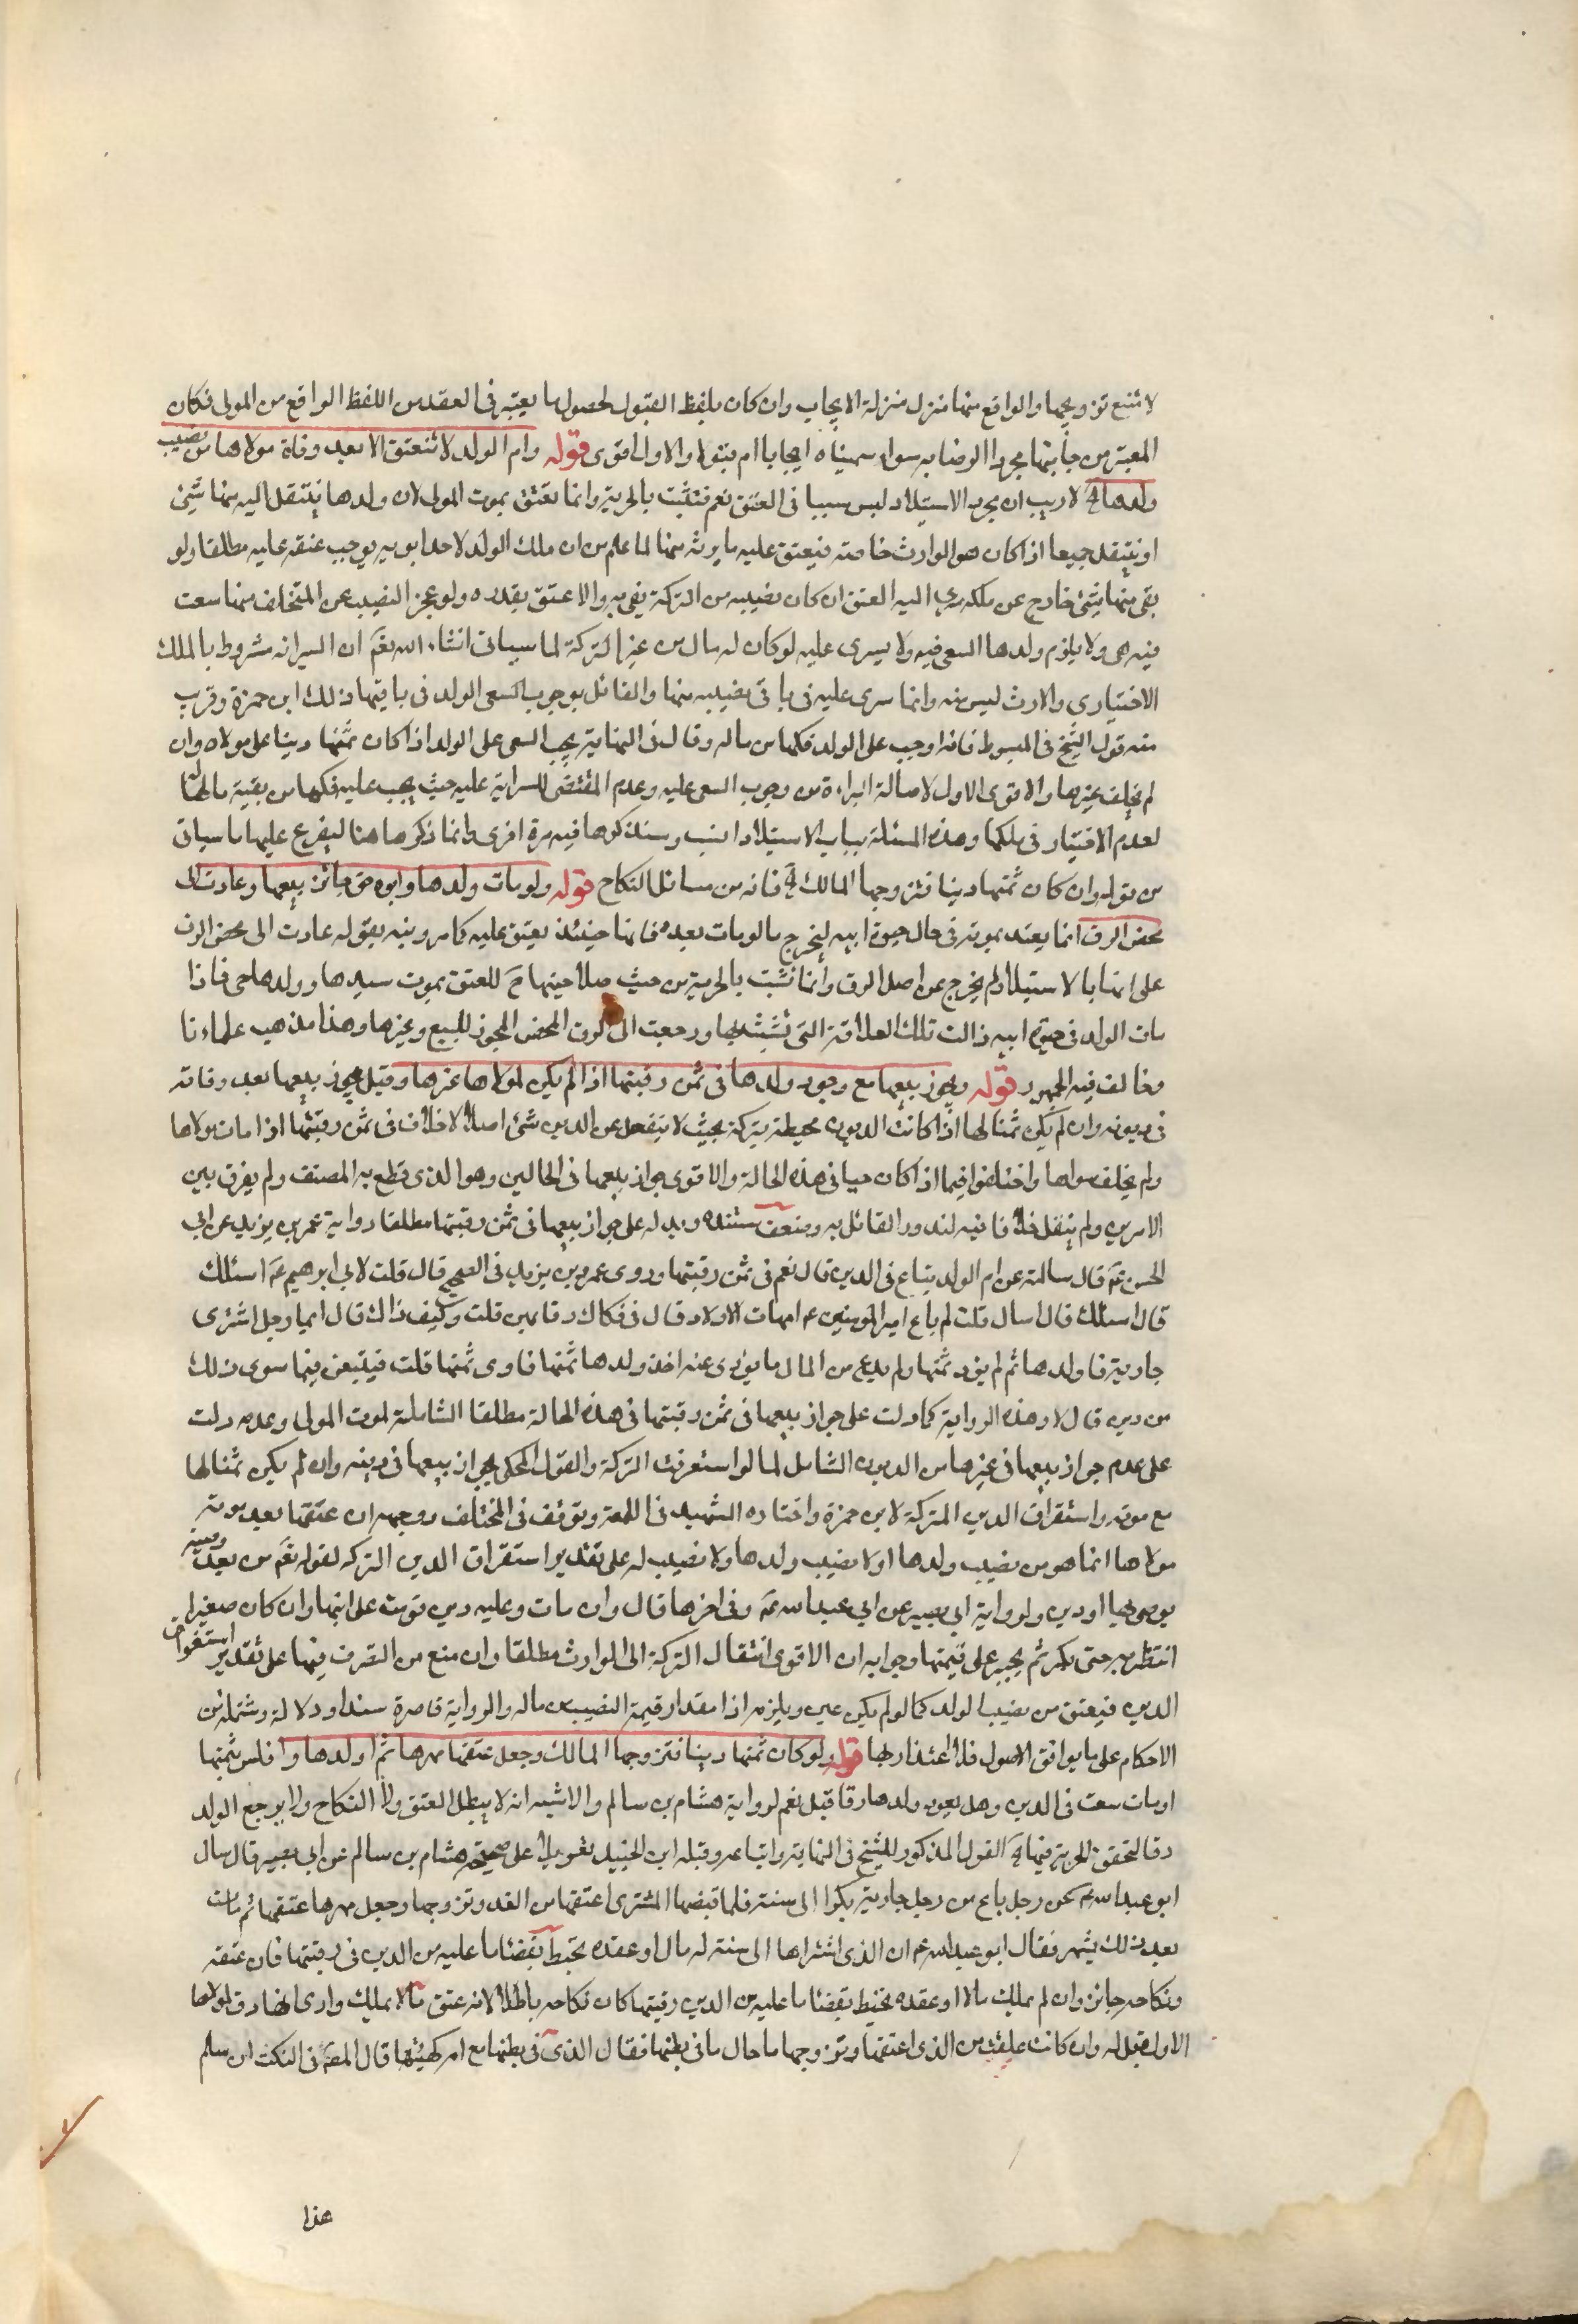 لا شبع تزويجها والواقع منها منزل منزلة الايجاب وان كان بلفظ القبول لحصول ما يعتبر فى العقد من اللفظ الواقع من المولى فكان
المعتبر من جانبها مجرد الرضا به سواء سميناه ايجابا ام قبولا والاول اقوى قوله وام الولد لا تنعتق الا بعد وفاة مولاها من نصيب
ولدها الخ لا ريب ان مجرد الاستيلاد ليس سببا فى العتق نعم تتشبث بالحرية وانما تعتق بموت المولى لان ولدها ينتقل اليه منها شئ
او ينتقل جميعا اذا كان هو الوارث خاصته فيعتق عليه ما يرثه منها لما علم من ان ملك الولد لاحد ابويه يوجب عتقه عليه مطلقا ولو
بقى منها شئ خارج عن ملكه سرى اليه العتق ان كان نصيبه من التركة يفى به والا عتق بقدره ولو عجز النصيب عن المتخلف منها سعت
فيه هى ولا يلزم ولدها السعى فيه ولا يسرى عليه لو كان له مال من غير التركة لما سياتى انشاء الله تعم ان السراية مشروط بالملك
الاختيارى والارث ليس منه وانما سرى عليه فى باقى نصيبه منها والقائل بوجوب السعى الولد فى باقيها ذلك ابن حمزة وقريب
منه قول الشيخ فى المبسوط فانه اوجب على الولد فكها من ماله وقال فى النهاية يجب السعى على الولد اذا كان ثمنها دينا على مولاه وان
لم يخلف غيرها والاقوى الاول لاصالة البراءة من وجوب السعى عليه وعدم المقتضى للسراية عليه حيث يجب عليه فكها من بقية ماله
لعدم الاختيار فى ملكها وهذه المسئلة بباب الاستيلاد انسب وسنذكرها فيه مرة اخرى وانما ذكرها هنا ليفرع عليها ما سياتى
من قوله وان كان ثمنها دينا فتزوجها المالك الخ فانه من مسائل النكاح قوله ولو مات ولدها وابوه حى جائز بيعها وعادت الى
محض الرق انما يعتد بموته فى حال حيوة ابيه ليخرج ما لو مات بعده فانها حينئذ يعتق عليه كما مر ونبه بقوله عادت الى محض الرق
على انها بالاستيلاد لم يخرج عن اصل الرق وانما تشبت بالحرية من حيث صلاحيتها ح للعتق بموت سيدها وولدها حى فاذا
مات الولد فى حيوة ابيه زالت تلك العلاقة التى تشبثت بها ورجعت الى الرق المحض المجوز للبيع وغيرها وهذا مذهب علماءنا
وخالف فيه الجمهور قوله ويجوز بيعها مع وجود ولدها فى ثمن رقبتها اذا لم يكن لمولاها غيرها وقيل يجوز بيعها بعد وفاته
فى ديونه وان لم يكن ثمنا لها اذا كانت الديون محيطة بتركته بحيث لا يفضل عن الدين شئ اصلا لا خلاف فى ثمن رقبتها اذا مات مولاها
ولم يخلف سواها واختلفوا فيما اذا كان حيا فى هذه الحالة والاقوى جواز بيعها فى الحالين وهو الذى قطع به المصنف ولم يفرق بين
الامرين ولم ينقل خلافا فيه لندور القائل به وضعف مستنده ويدل على جواز بيعها فى ثمن رقبتها مطلقا رواية عمر بن يزيد عن ابى
الحسن ع قال سالته عن ام الولد يباع فى الدين قال نعم فى ثمن رقبتها وروى عمر بن يزيد فى الصحيح قال قلت لابى ابرهيم ع اسئلك
قال اسئلك قال اسال قلت لم باع امير المومنين ع امهات الاولاد قال فى فكاك رقابهن قلت وكيف ذاك قال ايما رجل اشترى
جارية فاولدها ثم لم يود ثمنها ولم يدع من المال ما يودى عنه اخذ ولدها ثمنها فاوى ثمنها قلت فيبعن فيما سوى ذلك
من دين قال لا وهذه الرواية كما دلت على جواز بيعها فى ثمن رقبتها فى هذه الحالة مطلقا الشاملة لموت المولى وعدمه دلت
على عدم جواز بيعها فى غيرها من الديون الشامل لما لو استغرقت التركة والقول المحكى بجواز بيعها فى دينه وان لم يكن ثمنا لها
مع موته واستغراق الدين التركة لابن حمزة واختاره الشهيد فى اللمعة وتوقف فى المختلف ووجهه ان عتقها بعد موت
مولاها انما هو من نصيب ولدها اولا نصيب ولدها ولا نصيب له على تقدير استغراق الدين التركة لقوله تعم من بعد وصية
يوصى بها او دين ولرواية ابى بصير عن ابى عبد الله ع وفى اخرها قال وان مات وعليه دين قومت على ابنها وان كان صغيرا
انتظر به حتى يكبر ثم يجبر على قيمتها وجوابه ان الاقوى انتقال التركة الى الوارث مطلقا وان منع من التصرف فيها على تقدير استغراق
الدين فيعتق من نصيب الولد كما لو لم يكن دين ويلزمه اذا مقدار قيمة النصيب من ماله والرواية قاصرة سندا ودلالة وشتملة من
الاحكام على ما يوافق الاصول فلا اعتذار بها قوله ولو كان ثمنها دينا فتزوجها المالك وجعل عتقها مهرها ثم اولدها وافلس بثمنها
او مات سعت فى الدين وهل يعود ولدها رقا قيل نعم لرواية هشام بن سالم والاشبه انه لا يبطل العتق ولا النكاح ولا يرجع الولد
رقا لتحقق الحرية فيهما الخ القول المذكور للشيخ فى النهاية واتباعه وقبله ابن الجنيد تعويلا على صحيحة هشام بن سالم عن ابى بصير قال سال
ابو عبد الله ع عن رجل باع من رجل جارية بكرا الى سنة فلما قبضها المشترى اعتقها من الغد وتزوجها وجعل مهرها عتقها ثم مات
بعد ذلك بشهر فقال ابو عبد الله ع ان الذى اشتراها الى سنة له مال او عقده يحيط بقضاء ما عليه من الدين فى رقبتها فان عتقه
ونكاحه جائز وان لم يملك مالا او عقده يحيط بقضاء ما عليه من الدين رقبتها كان نكاحه باطلا لانه عتق مالا يملك وارى انها رق لمولاها
الاول قيل له وان كانت علقت من الذى اعتقها وتزوجها ما حال ما فى بطنها فقال الذى فى بطنها مع امه كهيئتها قال المصنف فى النكت ان سلم
هذا